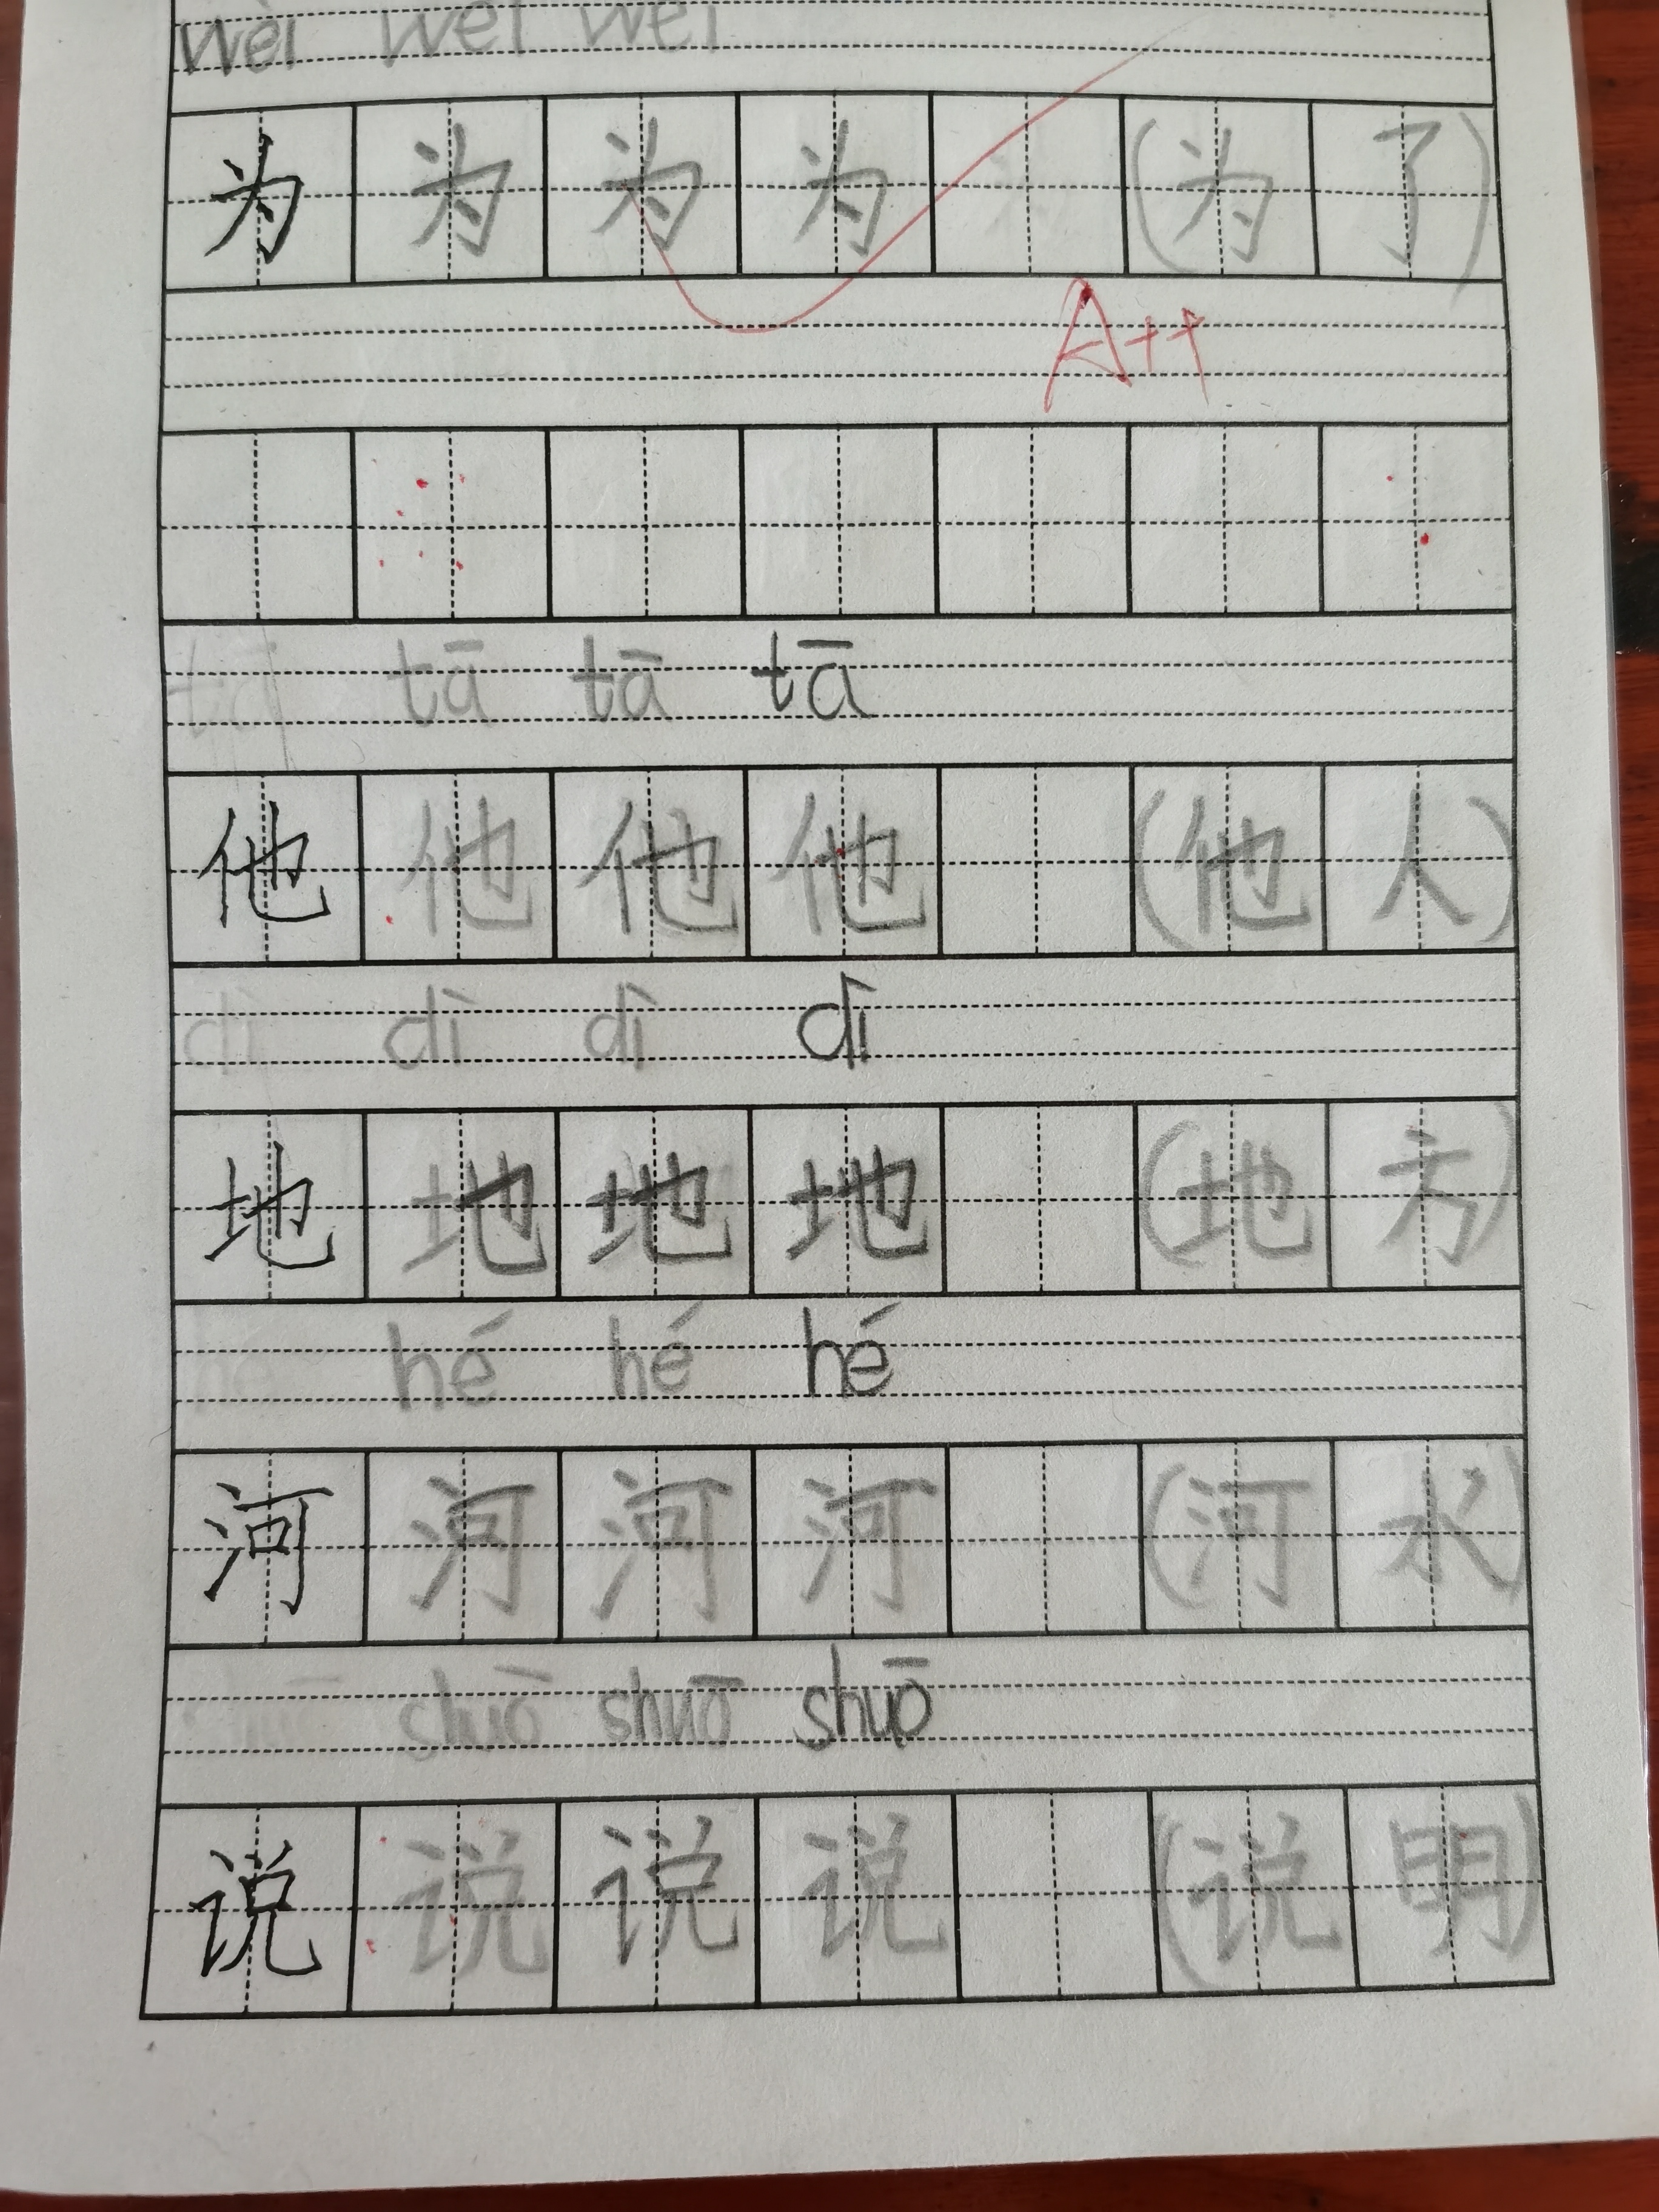 wèi wèi wèi
为 为 为 为 (为 了)
A++
tā tā tā tā
他 他 他 他 (他 人)
dì dì dì dì
地 地 地 地 (地 方)
hé hé hé
河 河 河 河 (河 水)
shuō shuō shuō
说 说 说 说 (说 明)